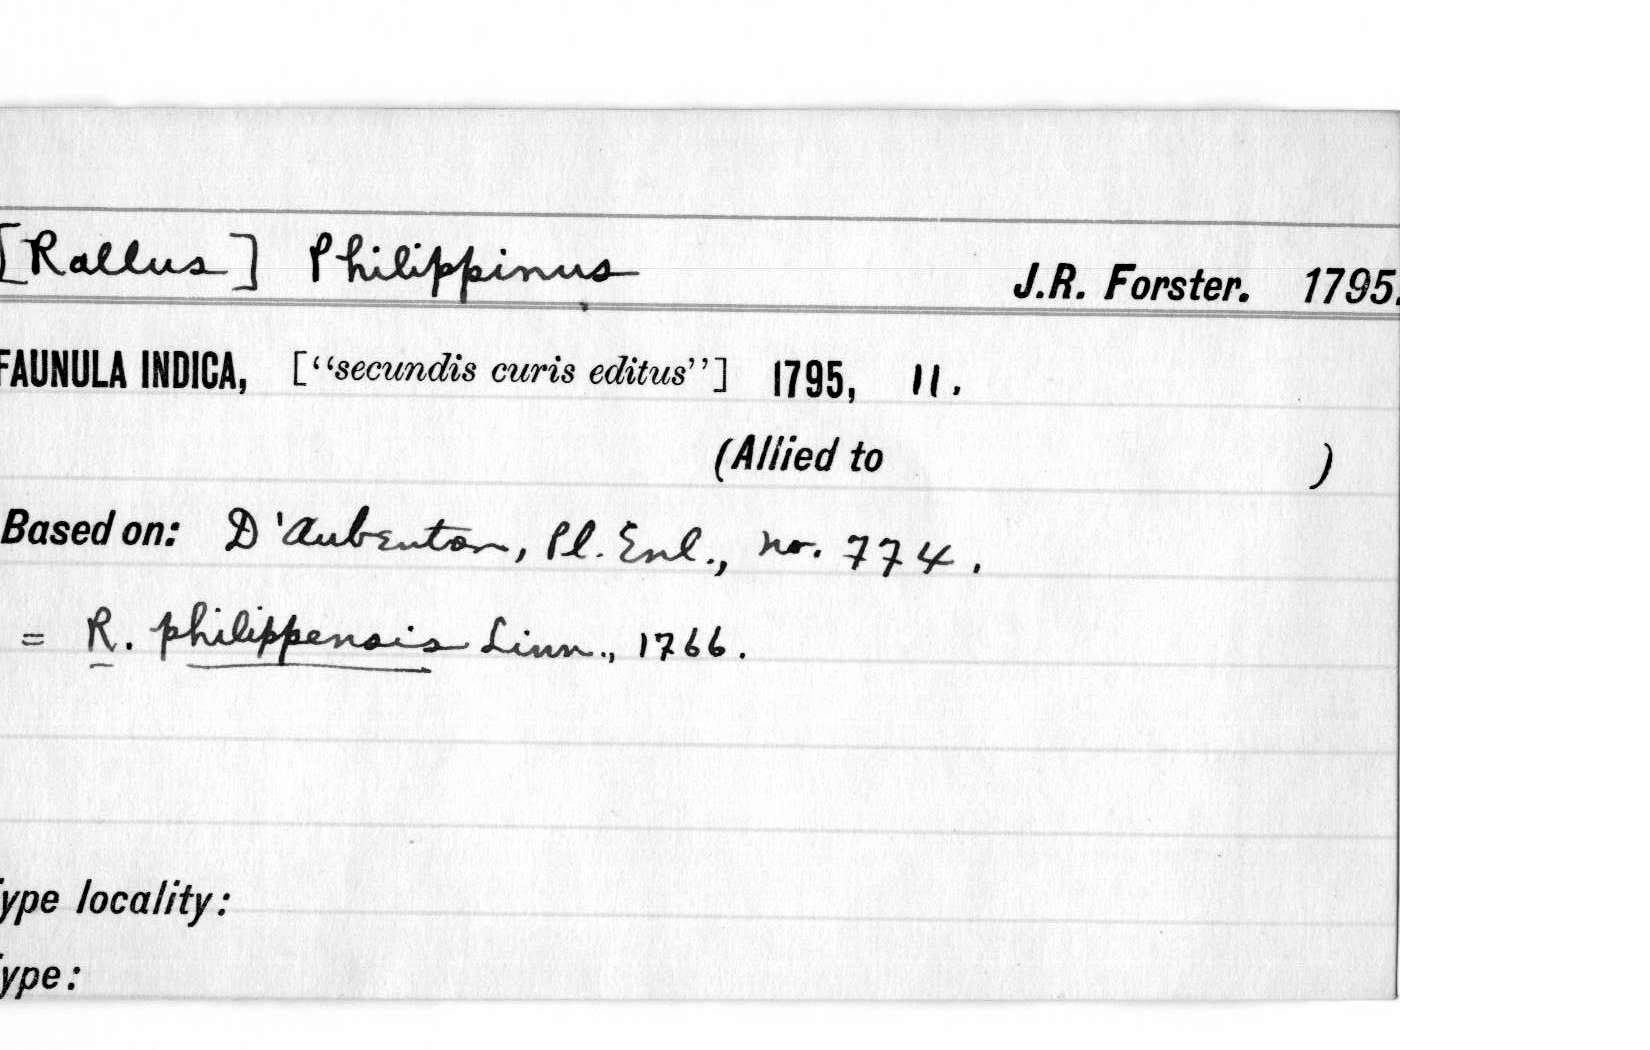 [Rallus] Philippinus J.R. Forster. 1795.
FAUNULA INDICA, [“secundis curis editus”] 1795, 11.
(Allied to )
Based on: D'Aubenton, Pl. Enl., no. 774.
= R. philippensis Linn., 1766.
ype locality:
ype: